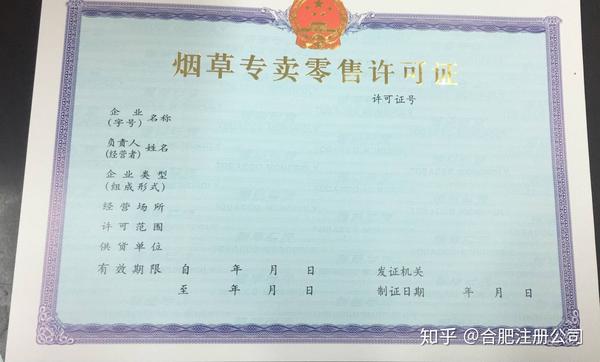 烟草专卖零售许可证
许可证号
企业(字号)名称
负责人(经营者)姓名
企业类型(组成形式)
经营场所
许可范围
供货单位
有效期限 自 年 月 日 发证机关
至 年 月 日 制证日期 年 月 日
知乎 @合肥注册公司